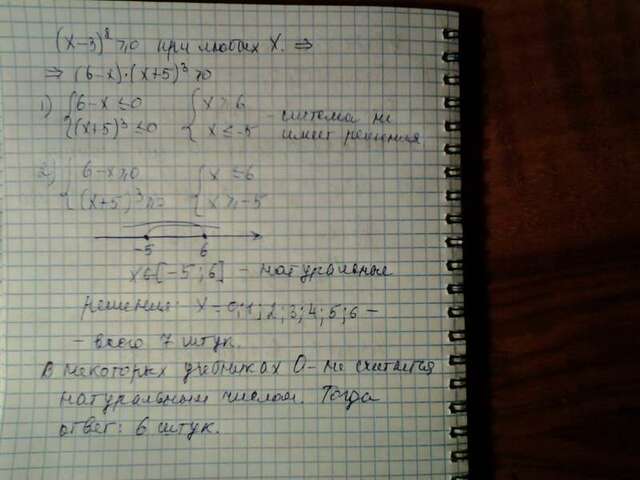 (x-3)⁸ ≥ 0 при любых X. ⇒
⇒ (6-x)·(x+5)³ ≥ 0
1) { 6-x ≤ 0 { x ≥ 6 - система не
{ (x+5)³ ≤ 0 { x ≤ -5 имеет решения
2) { 6-x ≥ 0 { x ≤ 6
{ (x+5)³ ≥ 0 { x ≥ -5
-5 6
x∈[-5; 6] - натуральные
решения: x = 0; 1; 2; 3; 4; 5; 6 -
- всего 7 штук.
В некоторых учебниках 0 - не считается
натуральным числом. Тогда
ответ: 6 штук.